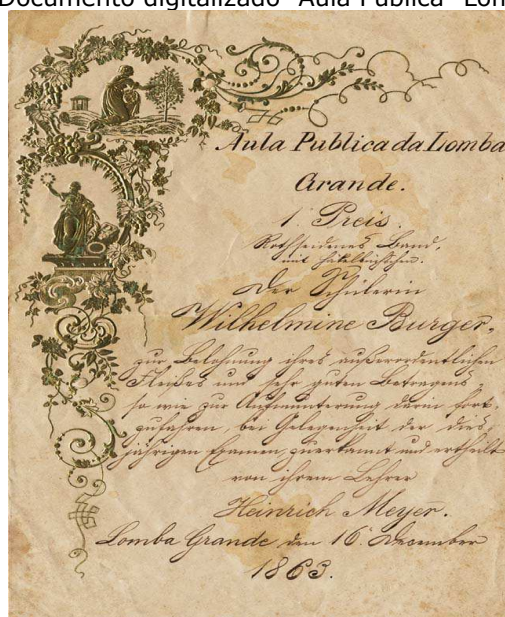 Documento digitalizado "Aula Pública" Lom
Aula Publica da Lomba
Grande.
1. Preis.
Rothseidenes Band,
mit
Der Schülerin
Wilhelmine Burger,
zur Belohnung ihres außerordentlichen
Fleißes und sehr guten Betragens,
so wie zur Aufmunterung darin fort-
zufahren, bei Gelegenheit der dies-
jährigen Examen zuerkannt und ertheilt
von ihrem Lehrer
Heinrich Meyer.
Lomba Grande den 16. December
1863.